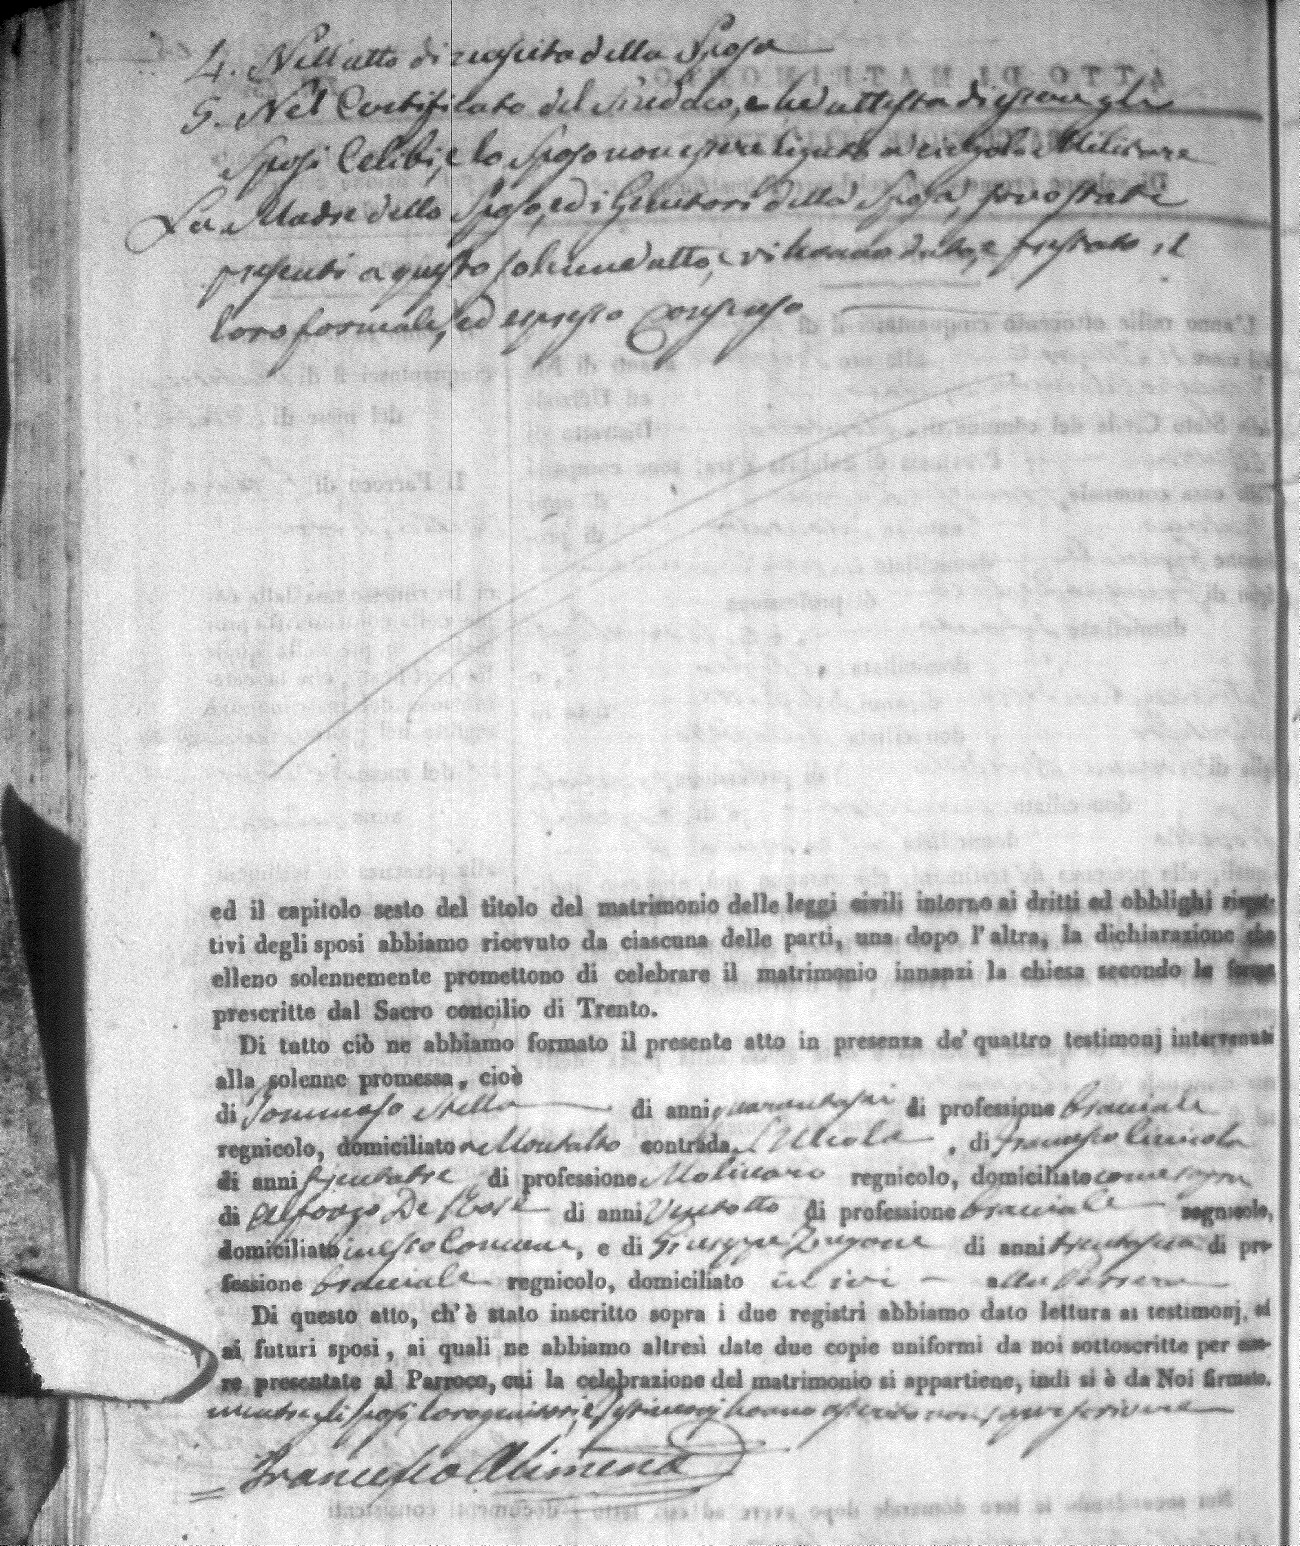 4. Nell'atto di nascita della Sposa
5. Nel Certificato del Sindaco, che attesta di essere gli
Sposi Celibi, e lo Sposo non essere ligato a vincolo Militare
La Madre dello Sposo, ed i Genitori della Sposa,
presenti a questo solenne atto, vi hanno dato, e prestato il
loro formale, ed espresso Consenso
ed il capitolo sesto del titolo del matrimonio delle leggi civili intorno ai dritti ed obblighi rispet-
tivi degli sposi abbiamo ricevuto da ciascuna delle parti, una dopo l'altra, la dichiarazione che
elleno solennemente promettono di celebrare il matrimonio innanzi la chiesa secondo le forme
prescritte dal Sacro concilio di Trento.
Di tutto ciò ne abbiamo formato il presente atto in presenza de' quattro testimonj intervenuti
alla solenne promessa, cioè
di Tommaso Stella di anni quarantasei di professione bracciale
regnicolo, domiciliato a Montalto contrada, di Francesco
di anni trentatre di professione Molinaro regnicolo, domiciliato come sopra
di Alfonzo De Rose di anni Ventotto di professione bracciale regnicolo,
domiciliato in esso Comune, e di Giuseppe di anni trentasei di pro-
fessione bracciale regnicolo, domiciliato ivi
Di questo atto, ch'è stato inscritto sopra i due registri abbiamo dato lettura ai testimonj, ed
ai futuri sposi, ai quali ne abbiamo altresì date due copie uniformi da noi sottoscritte per esse-
re presentate al Parroco, cui la celebrazione del matrimonio si appartiene, indi si è da Noi firmato.
mentre gli Sposi, loro genitori, e Testimonj hanno asserito non sapere scrivere
Francesco Alimena